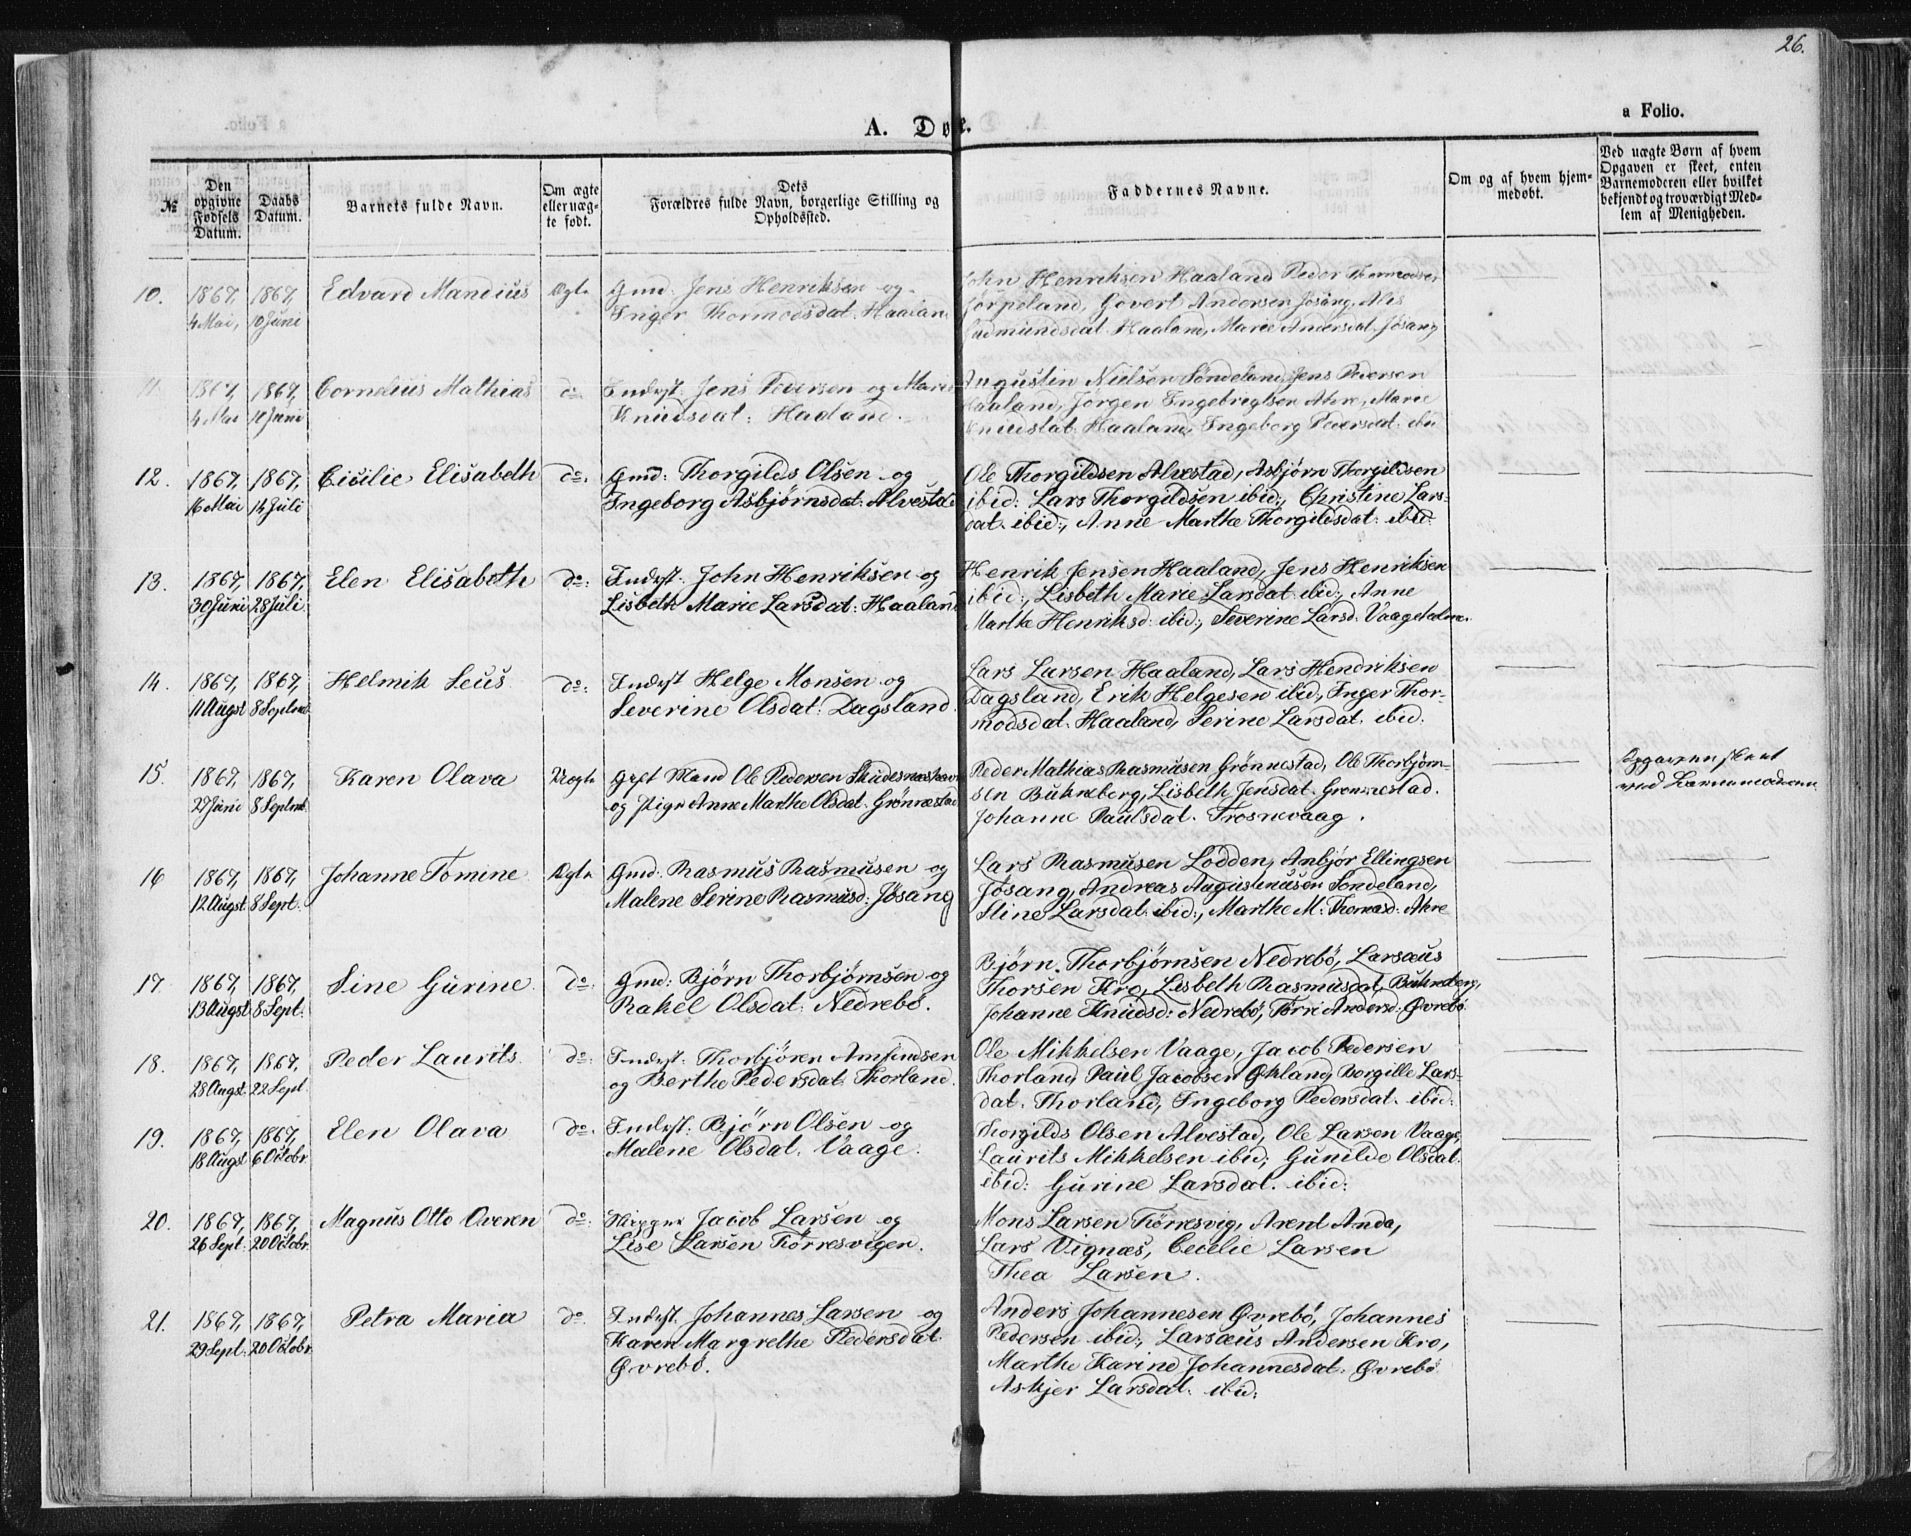 26.
A. Døbte.
a Folio.
№
Den opgivne Fødsels Datum.
Daabs Datum.
Barnets fulde Navn.
Om ægte eller uægte født.
Dets Forældres fulde Navn, borgerlige Stilling og Opholdssted.
Faddernes Navne.
Om og af hvem hjemmedøbt.
Ved uægte Børn af hvem Opgaven er skeet, enten Barnemoderen eller hvilket bekjendt og troværdigt Medlem af Menigheden.
10. 1867, 1867, Edvard Mandius Ægte Gmd: Jens Henriksen og John Henriksen Haaland Peder Thormodsen
4 Mai, 10 Juni Inger Thormodsdat. Haaland Jørpeland, Govert Andersen Jøsang, Alis
Gudmundsdat. Haaland, Marie Andersdat. Jøsang
11. 1867, 1867, Cornelius Mathias do Inderst. Jens Pedersen og Marie Augustin Nielsen Søndeland, Jens Pedersen
4 Mai 10 Juni Knudsdat: Haaland. Haaland, Jørgen Ingebrigtsen Ahre, Marie
Knudsdat. Haaland, Ingeborg Pedersdat. ibid
12. 1867, 1867, Cicilie Elisabeth do. Gmd: Thorgilds Olsen og Ole Thorgildsen Alvestad, Asbjørn Thorgildsen
16 Mai 14 Juli Ingeborg Asbjørnsdat: Alvestad ibid: Lars Thorgildsen ibid:, Christine Lars-
dat. ibid:, Anne Marthe Thorgildsdat: ibid:
13. 1867, 1867, Elen Elisabeth do: Inderst. John Henriksen og Henrik Jensen Haaland, Jens Henriksen
30 Juni 28 Juli. Lisbeth Marie Larsdat: Haaland ibid:, Lisbeth Marie Larsdat. ibid:, Anne
Marthe Henriksd: ibid:, Severine Larsd. Vaageholmen.
14. 1867, 1867, Helmik Seus do: Inderst Helge Monsen og Lars Larsen Haaland, Lars Hendriksen
11 Augst 8 Septemb. Severine Olsdat: Dagsland. Dagsland, Erik Helgesen ibid, Inger Thor-
modsdat. Haaland, Serine Larsdat. ibid.
15. 1867, 1867, Karen Olava Uægte Gift Mand Ole Pedersen Skudesneshavn Peder Mathias Rasmusen Grønnestad, Ole Thorbjørn- Opgaven skeet
27 Juni 8 Septemb. og Pige Anne Marthe Olsdat. Grønnestad sen Bukkeberg, Lisbeth Jensdat. Grønnestad. ved Barnemoderen
Johanne Paulsdat. Trosnevaag.
16 1867, 1867, Johanne Tomine Ægte Gmd: Rasmus Rasmusen og Lars Rasmusen Lødden, Anbjør Ellingsen
12 Augst 8 Sept. Malene Serine Rasmusd: Jøsang Jøsang, Andreas Augustinusen Søndeland,
Stine Larsdat. ibid:, Marthe M: Thomasd: Ahre
17 1867, 1867, Sine Gurine. do: Gmd: Bjørn Thorbjørnsen og Bjørn Thorbjørnsen Nedrebø, Larsæus
13 Augst 8 Sept. Rakel Olsdat. Nedrebø. Thorsen Kro, Lisbeth Rasmusdat, Bukkeberg,
Johanne Knudsd: Nedrebø, Torri Andersd: Øvrebø
18. 1867, 1867, Peder Laurits. do: Inderst: Thorbjøren Amundsen Ole Mikkelsen Vaage, Jacob Pedersen
28 Augst. 22 Sept. og Berthe Pedersdat: Thorland. Thorland, Paul Jacobsen Økland, Borgille Lars-
dat. Thorland, Ingeborg Pedersdat. ibid:
19. 1867, 1867, Elen Olava do. Inderst: Bjørn Olsen og Thorgilds Olsen Alvestad, Ole Larsen Vaage,
18 Augst 6 Octobr. Malene Olsdat. Vaage. Laurits Mikkelsen ibid; Gunilde Olsdat.
ibid: Gurine Larsdat. ibid:
20. 1867, 1867, Magnus Otto Overen do: Skipper Jacob Larsen og Mons Larsen Tørresvig, Arent Anda,
26 Sept. 20 Octobr. Lise Larsen Tørresvigen. Lars Vignæs, Cecelie Larsen
Thea Larsen.
21. 1867, 1867, Petra Maria do. Inderst. Johannes Larsen og Anders Johannesen Øvrebø, Johannes
29 Sept. 20 Octobr Karen Margrethe Pedersdat. Pedersen ibid:, Larsæus Andersen Kro,
Øvrebø. Marthe Karine Johannesdat. Øvrebø
Askjer Larsdat. ibid: